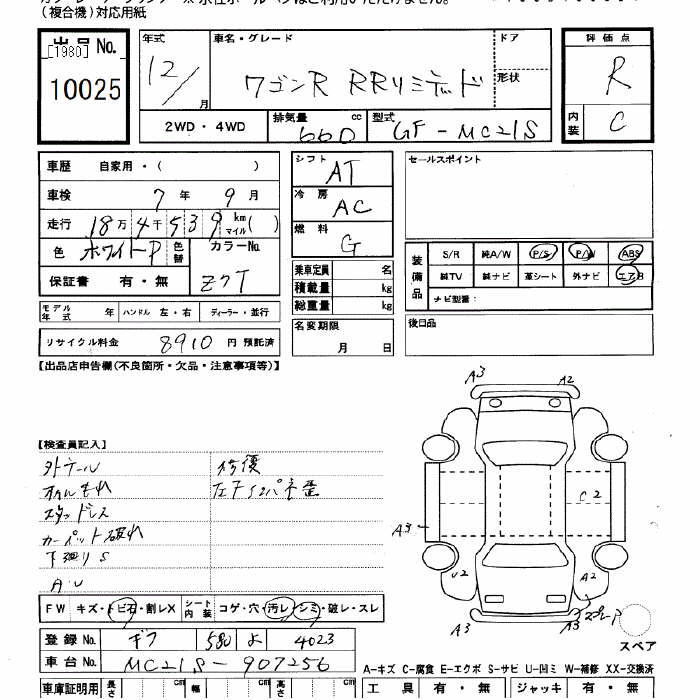 (複合機)対応用紙
出品 No.
[1980]
10025
年式
12/
月
車名・グレード
ワゴンR RRリミテッド
ドア
形状
評価点
R
内装
C
2WD・4WD
排気量
660
cc
型式
GF-MC21S
車歴 自家用・( )
車検 7 年 9 月
走行 18万 4千 539 km マイル( )
色 ホワイトP 色替
カラーNo.
Z7T
保証書 有・無
シフト
AT
冷房
AC
燃料
G
乗車定員 名
積載量 kg
総重量 kg
名変期限
月 日
セールスポイント
装備品
S/R 純A/W P/S P/W ABS
純TV 純ナビ 革シート 外ナビ エアB
ナビ型番:
後日品
モデル年式 年 ハンドル 左・右 ディーラー・並行
リサイクル料金 8910 円 預託済
【出品店申告欄(不良箇所・欠品・注意事項等)】
A3 A2
【検査員記入】
外テール 修復
オイルもれ 左リヤインパネ歪
スタッドレス
カーペット破れ
下廻りS
A・U
C2
A3
U2 A2
A3 A3
スペア
FW キズ・トビ石・割レX シート内装 コゲ・穴・汚レ・シミ・破レ・スレ
登録 No. ギフ 580 よ 4023
車台 No. MC21S-907256
A-キズ C-腐食 E-エクボ S-サビ U-凹ミ W-補修 XX-交換済
車庫証明用 長さ cm 幅 cm 高さ cm
工具 有・無 ジャッキ 有・無